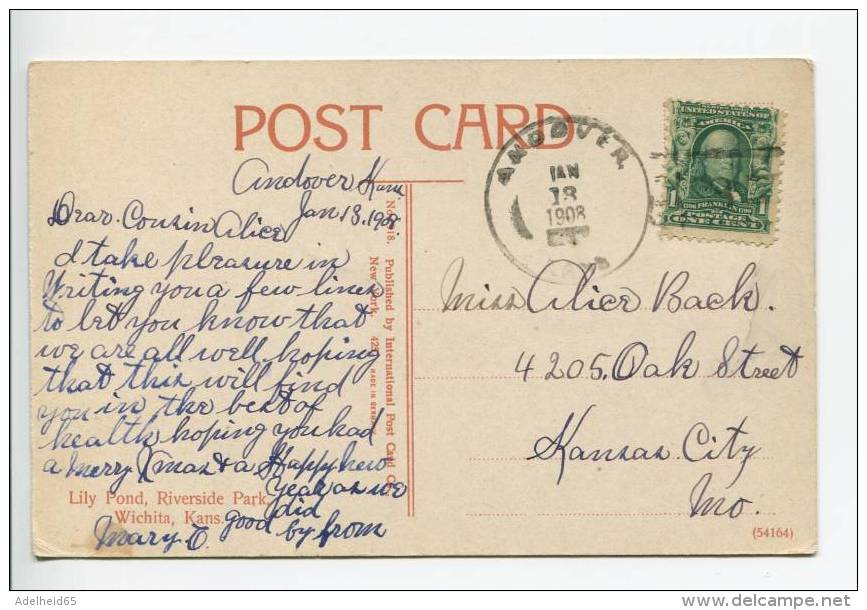 POST CARD
ANDOVER
JAN
13
1908
KANS
UNITED STATES OF
AMERICA
1 FRANKLIN 1
POSTAGE
ONE CENT
Andover Kans.
Jan 13. 1908.
Dear Cousin Alice
I take pleasure in
Writing you a few lines
to let you know that
we are all well hoping
that this will find
you in the best of
health hoping you had
a merry Xmas & a Happy new
year as we
did
good by from
Mary E.
Lily Pond, Riverside Park,
Wichita, Kans.
Published by International Post Card Co.
New York.
MADE IN GERMANY
Miss Alice Back.
4205. Oak Street
Kansas City
Mo.
(54164)
Adelheid65
delcampe.net